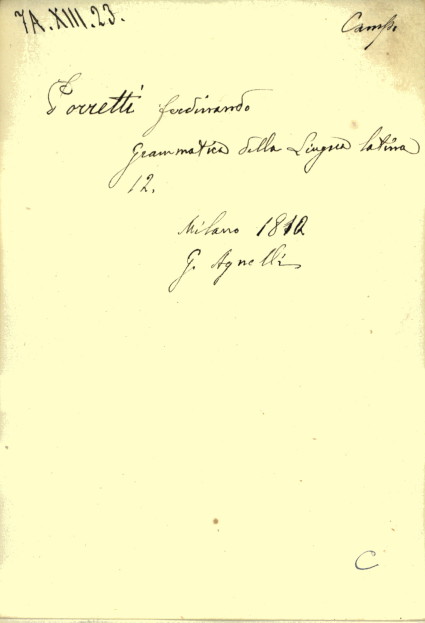 7A.XIII.23.
Camp.
Porretti ferdinando
Grammatica della Lingua latina
12.
Milano 1812
G. Agnelli
C